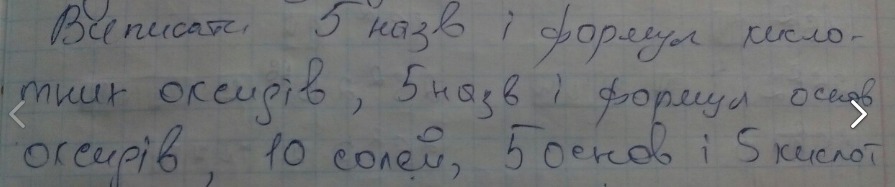 Виписати 5 назв і формул кисло-
тних оксидів, 5 назв і формул основ
оксидів, 10 солей, 5 основ і 5 кислот